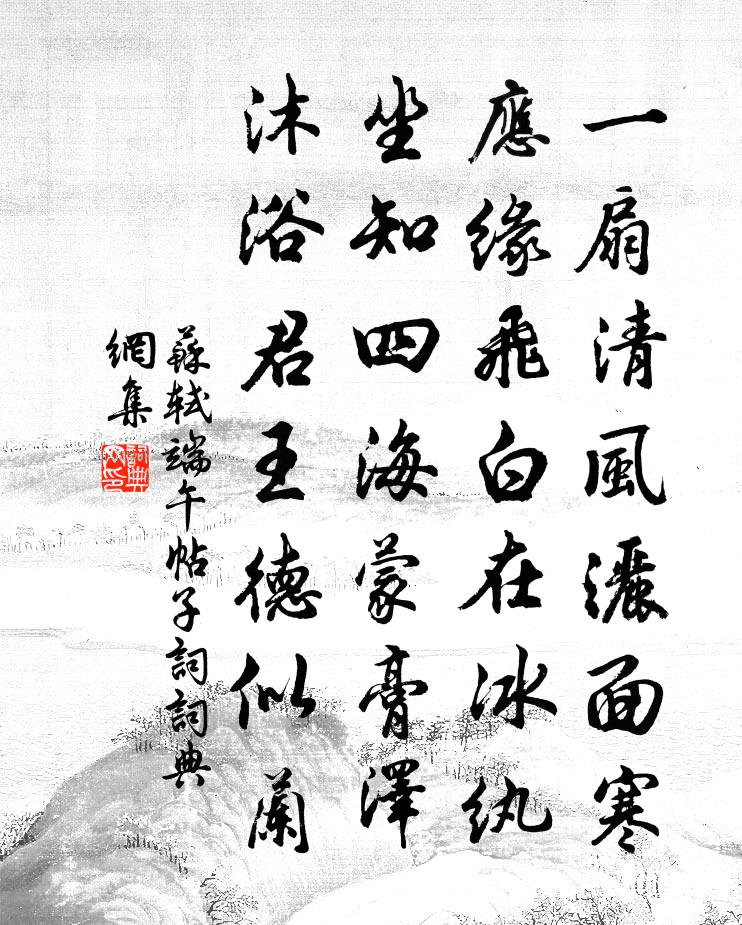 一扇清風灑面寒
應緣飛白在冰紈
坐知四海蒙膏澤
沐浴君王德似蘭
蘇軾端午帖子詞詞典
網集
詞典網印